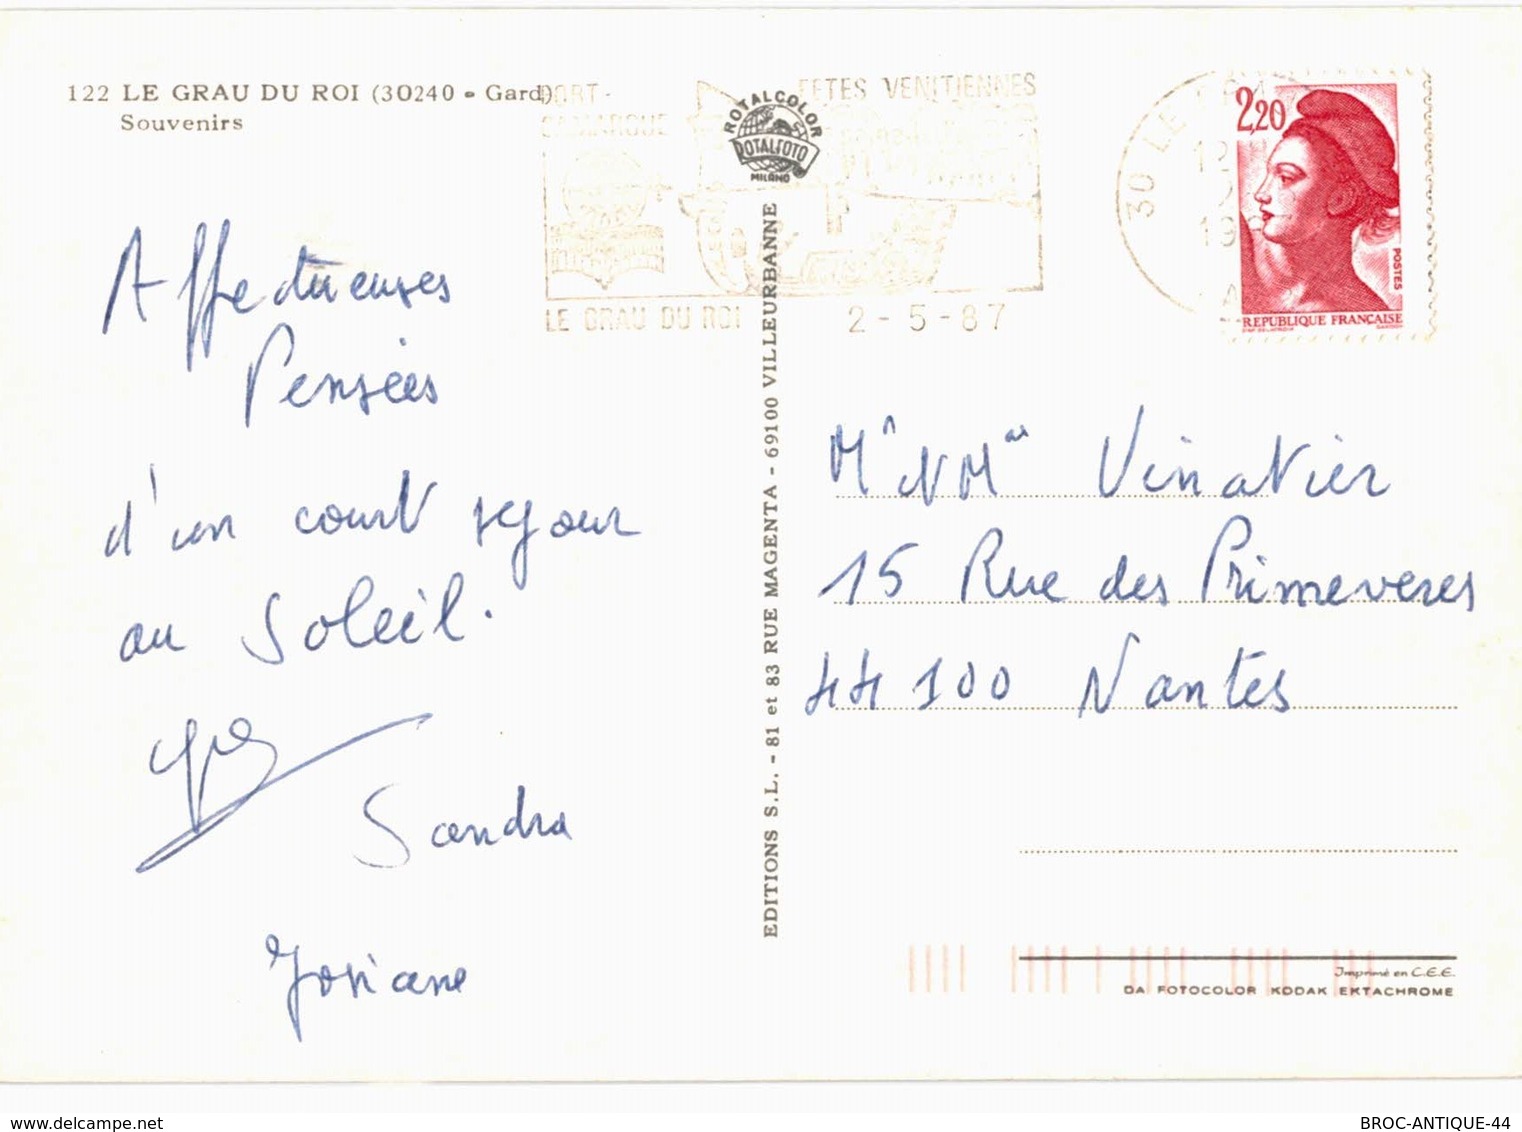 122 LE GRAU DU ROI (30240 - Gard)
Souvenirs
PORT-
CAMARGUE
FETES VENITIENNES
LE GRAU DU ROI
2-5-87
ROTALCOLOR
ROTALFOTO
MILANO
30 LE
2,20
POSTES
REPUBLIQUE FRANÇAISE
Affectueuses
Pensées
d'un court sejour
au Soleil.
Sandra
Josiane
EDITIONS S.L. - 81 et 83 RUE MAGENTA - 69100 VILLEURBANNE
Vinatier
15 Rue des Primeveres
44100 Nantes
Imprimé en C.E.E.
DA FOTOCOLOR KODAK EKTACHROME
delcampe.net
BROC-ANTIQUE-44